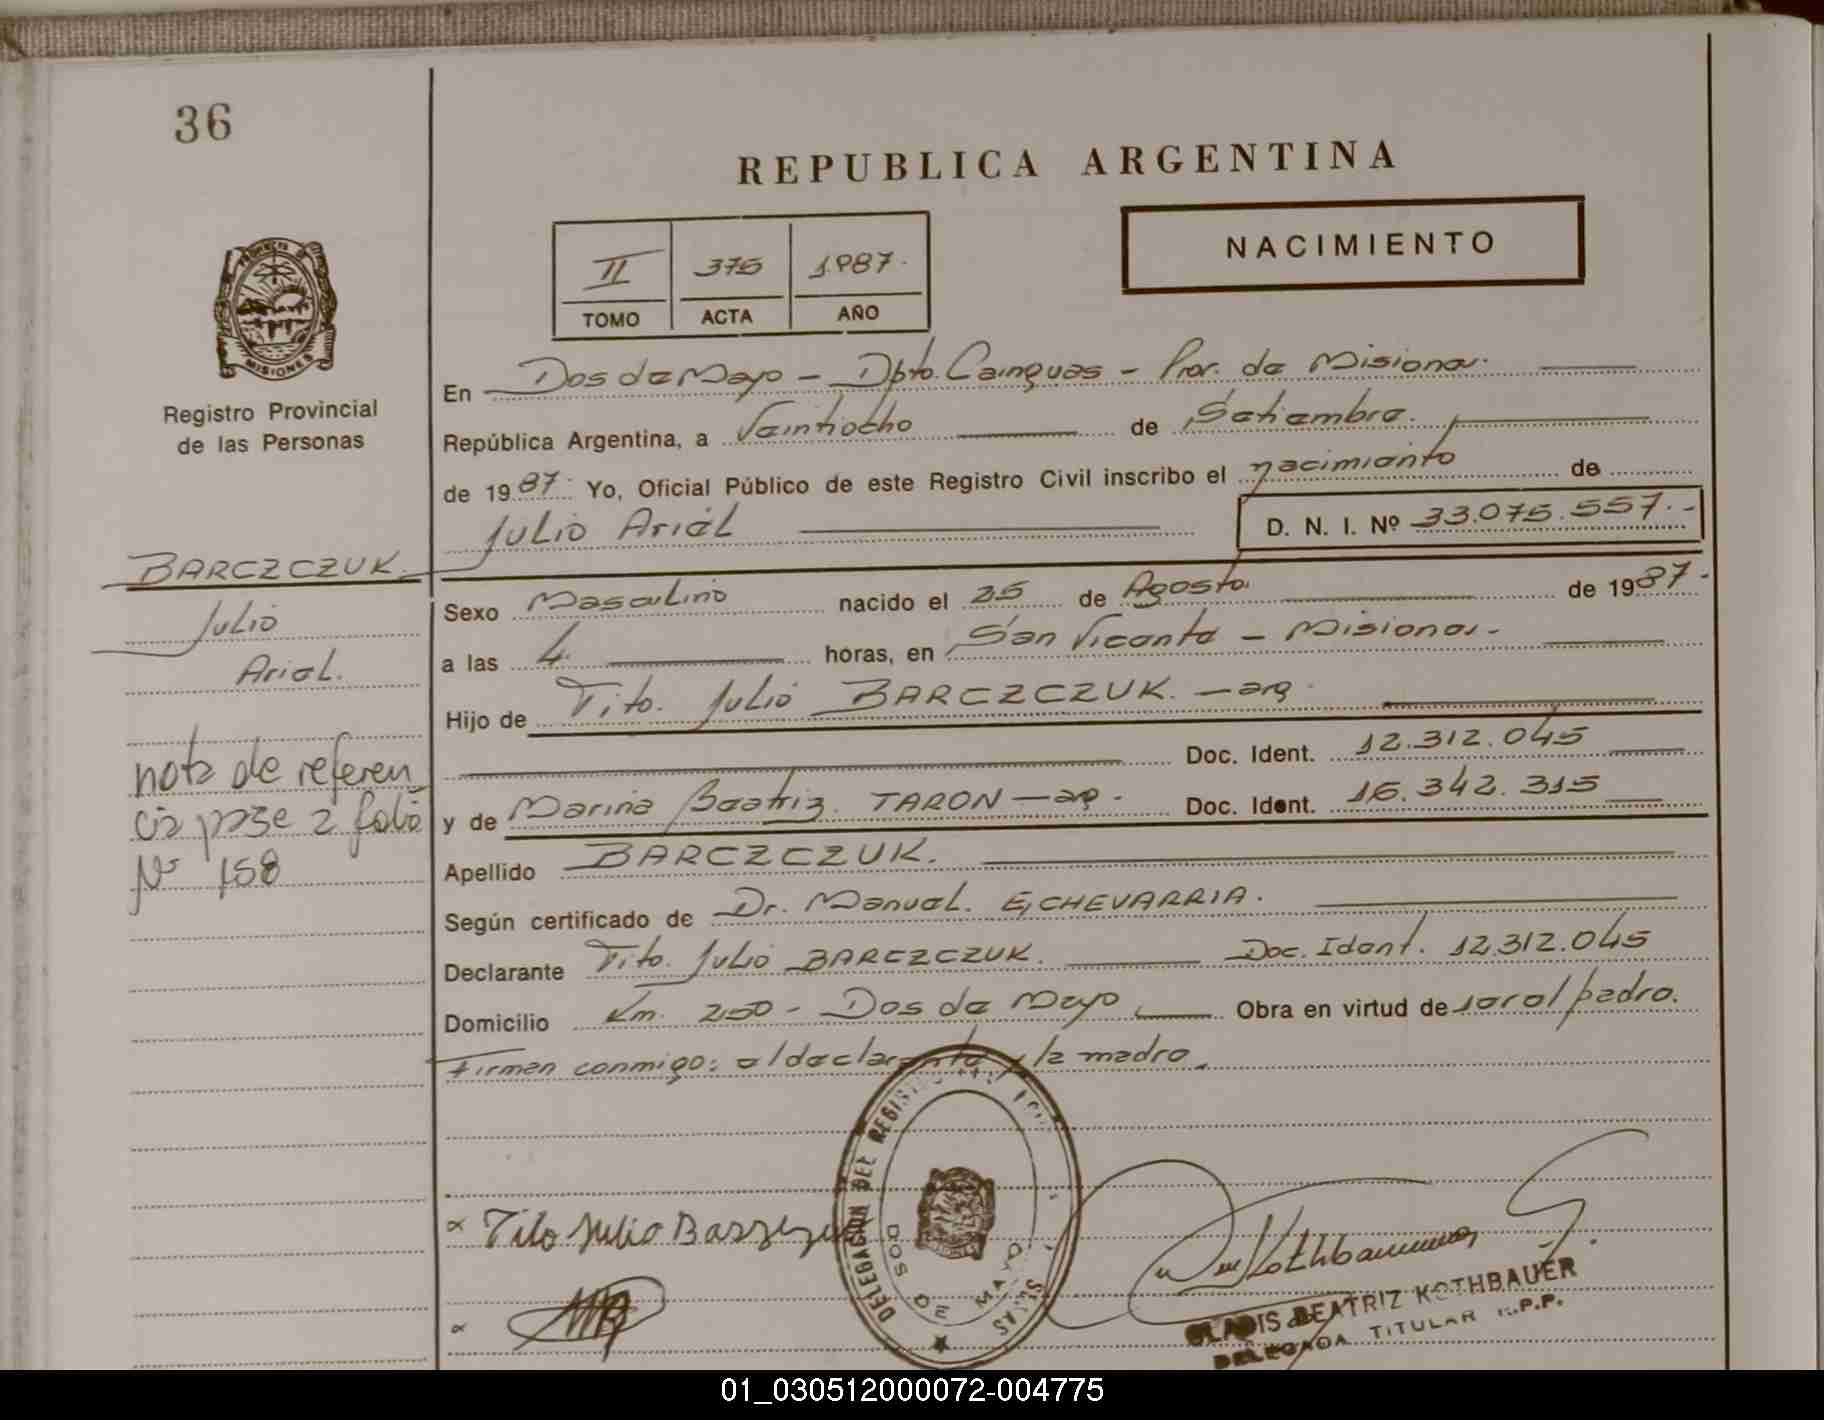 36
REPUBLICA ARGENTINA
NACIMIENTO
II 375 1987.
TOMO ACTA AÑO
PROVINCIA DE MISIONES
Registro Provincial
de las Personas
En Dos de Mayo - Dpto. Cainguas - Prov. de Misiones.
República Argentina, a Veintiocho de Setiembre.
de 1987. Yo, Oficial Público de este Registro Civil inscribo el nacimiento de
Julio Ariel
D. N. I. Nº 33.075.557.-
BARCZCZUK.
Julio
Ariel.
nota de referen
cia pase a folio
Nº 158
Sexo Masculino nacido el 25 de Agosto. de 1987.
a las 4. horas, en San Vicente - Misiones.-
Hijo de Tito. Julio BARCZCZUK. - arg.
Doc. Ident. 12.312.045
y de Marina Beatriz. TARON - arg. Doc. Ident. 16.342.315
Apellido BARCZCZUK.
Según certificado de Dr. Manuel. ECHEVARRIA.
Declarante Tito. Julio BARCZCZUK. Doc. Ident. 12.312.045
Domicilio Km. 250 - Dos de Mayo Obra en virtud de ser el padre.
Firman conmigo: el declarante y la madre.
DELEGACION DEL REGISTRO
DOS DE MAYO
Tito Julio
GLADIS BEATRIZ KOTHBAUER
DELEGADA TITULAR R.P.P.
01_030512000072-004775